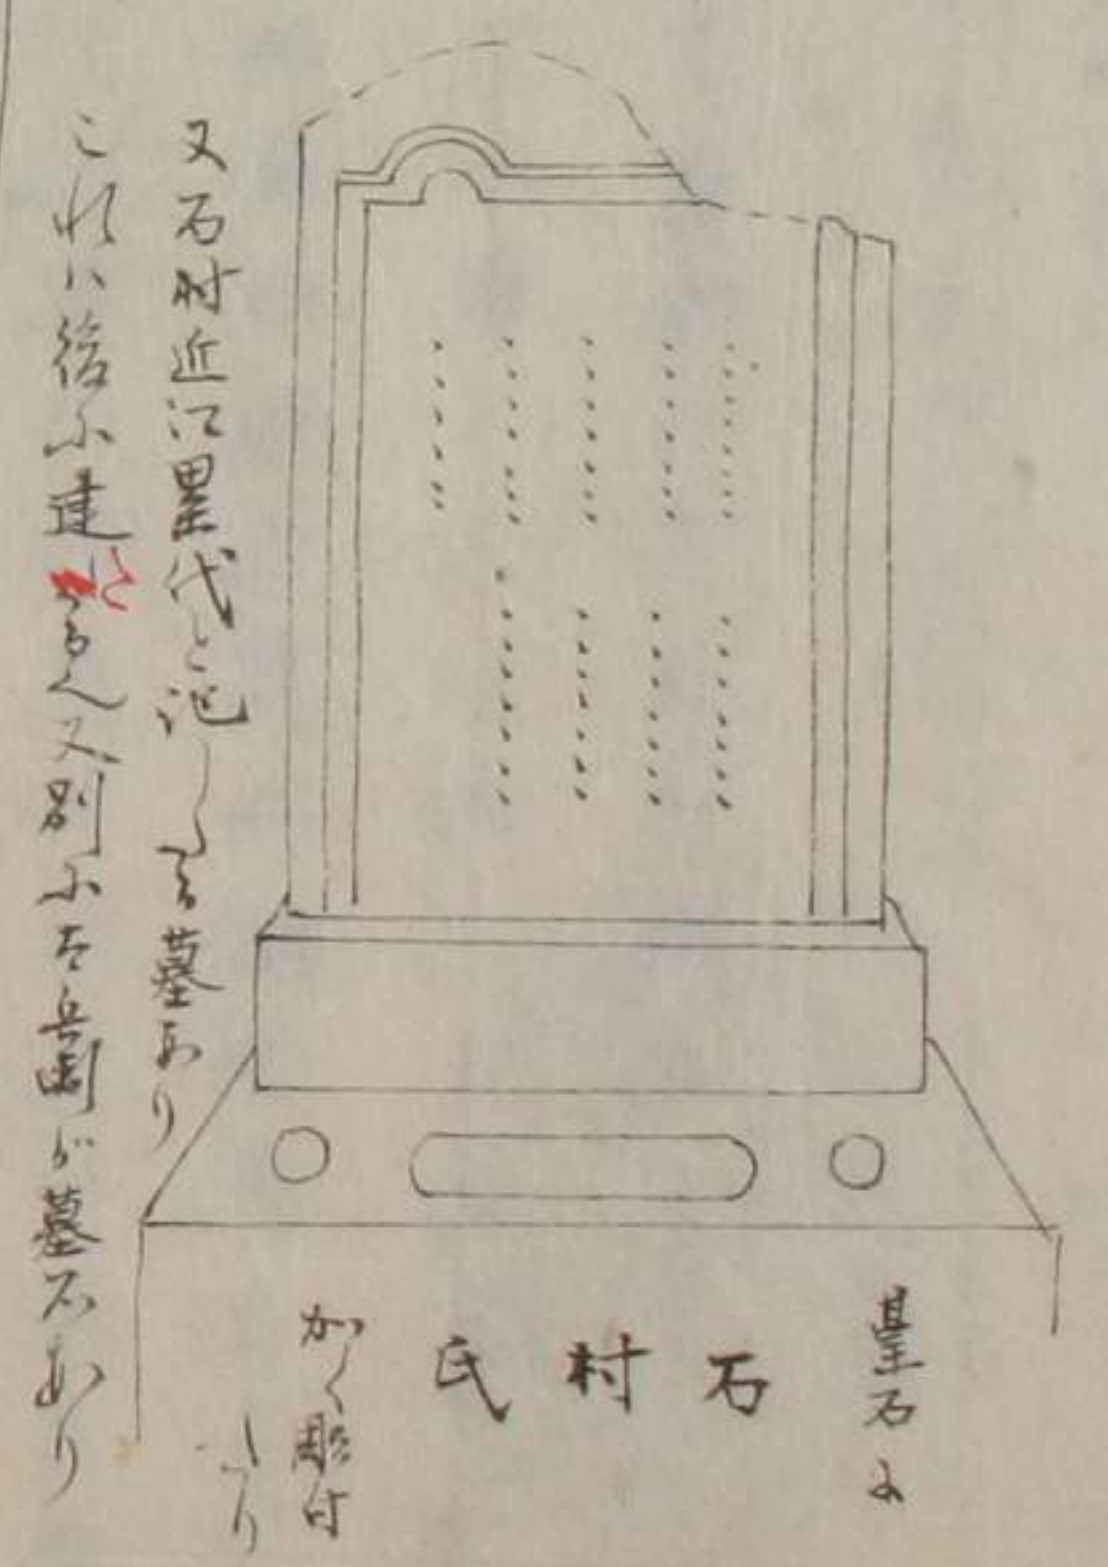 臺石に
石村氏
かく彫付
したり
又石村近江累代と記したる墓あり
これハ後に建たる也又別に太兵衛が墓所あり